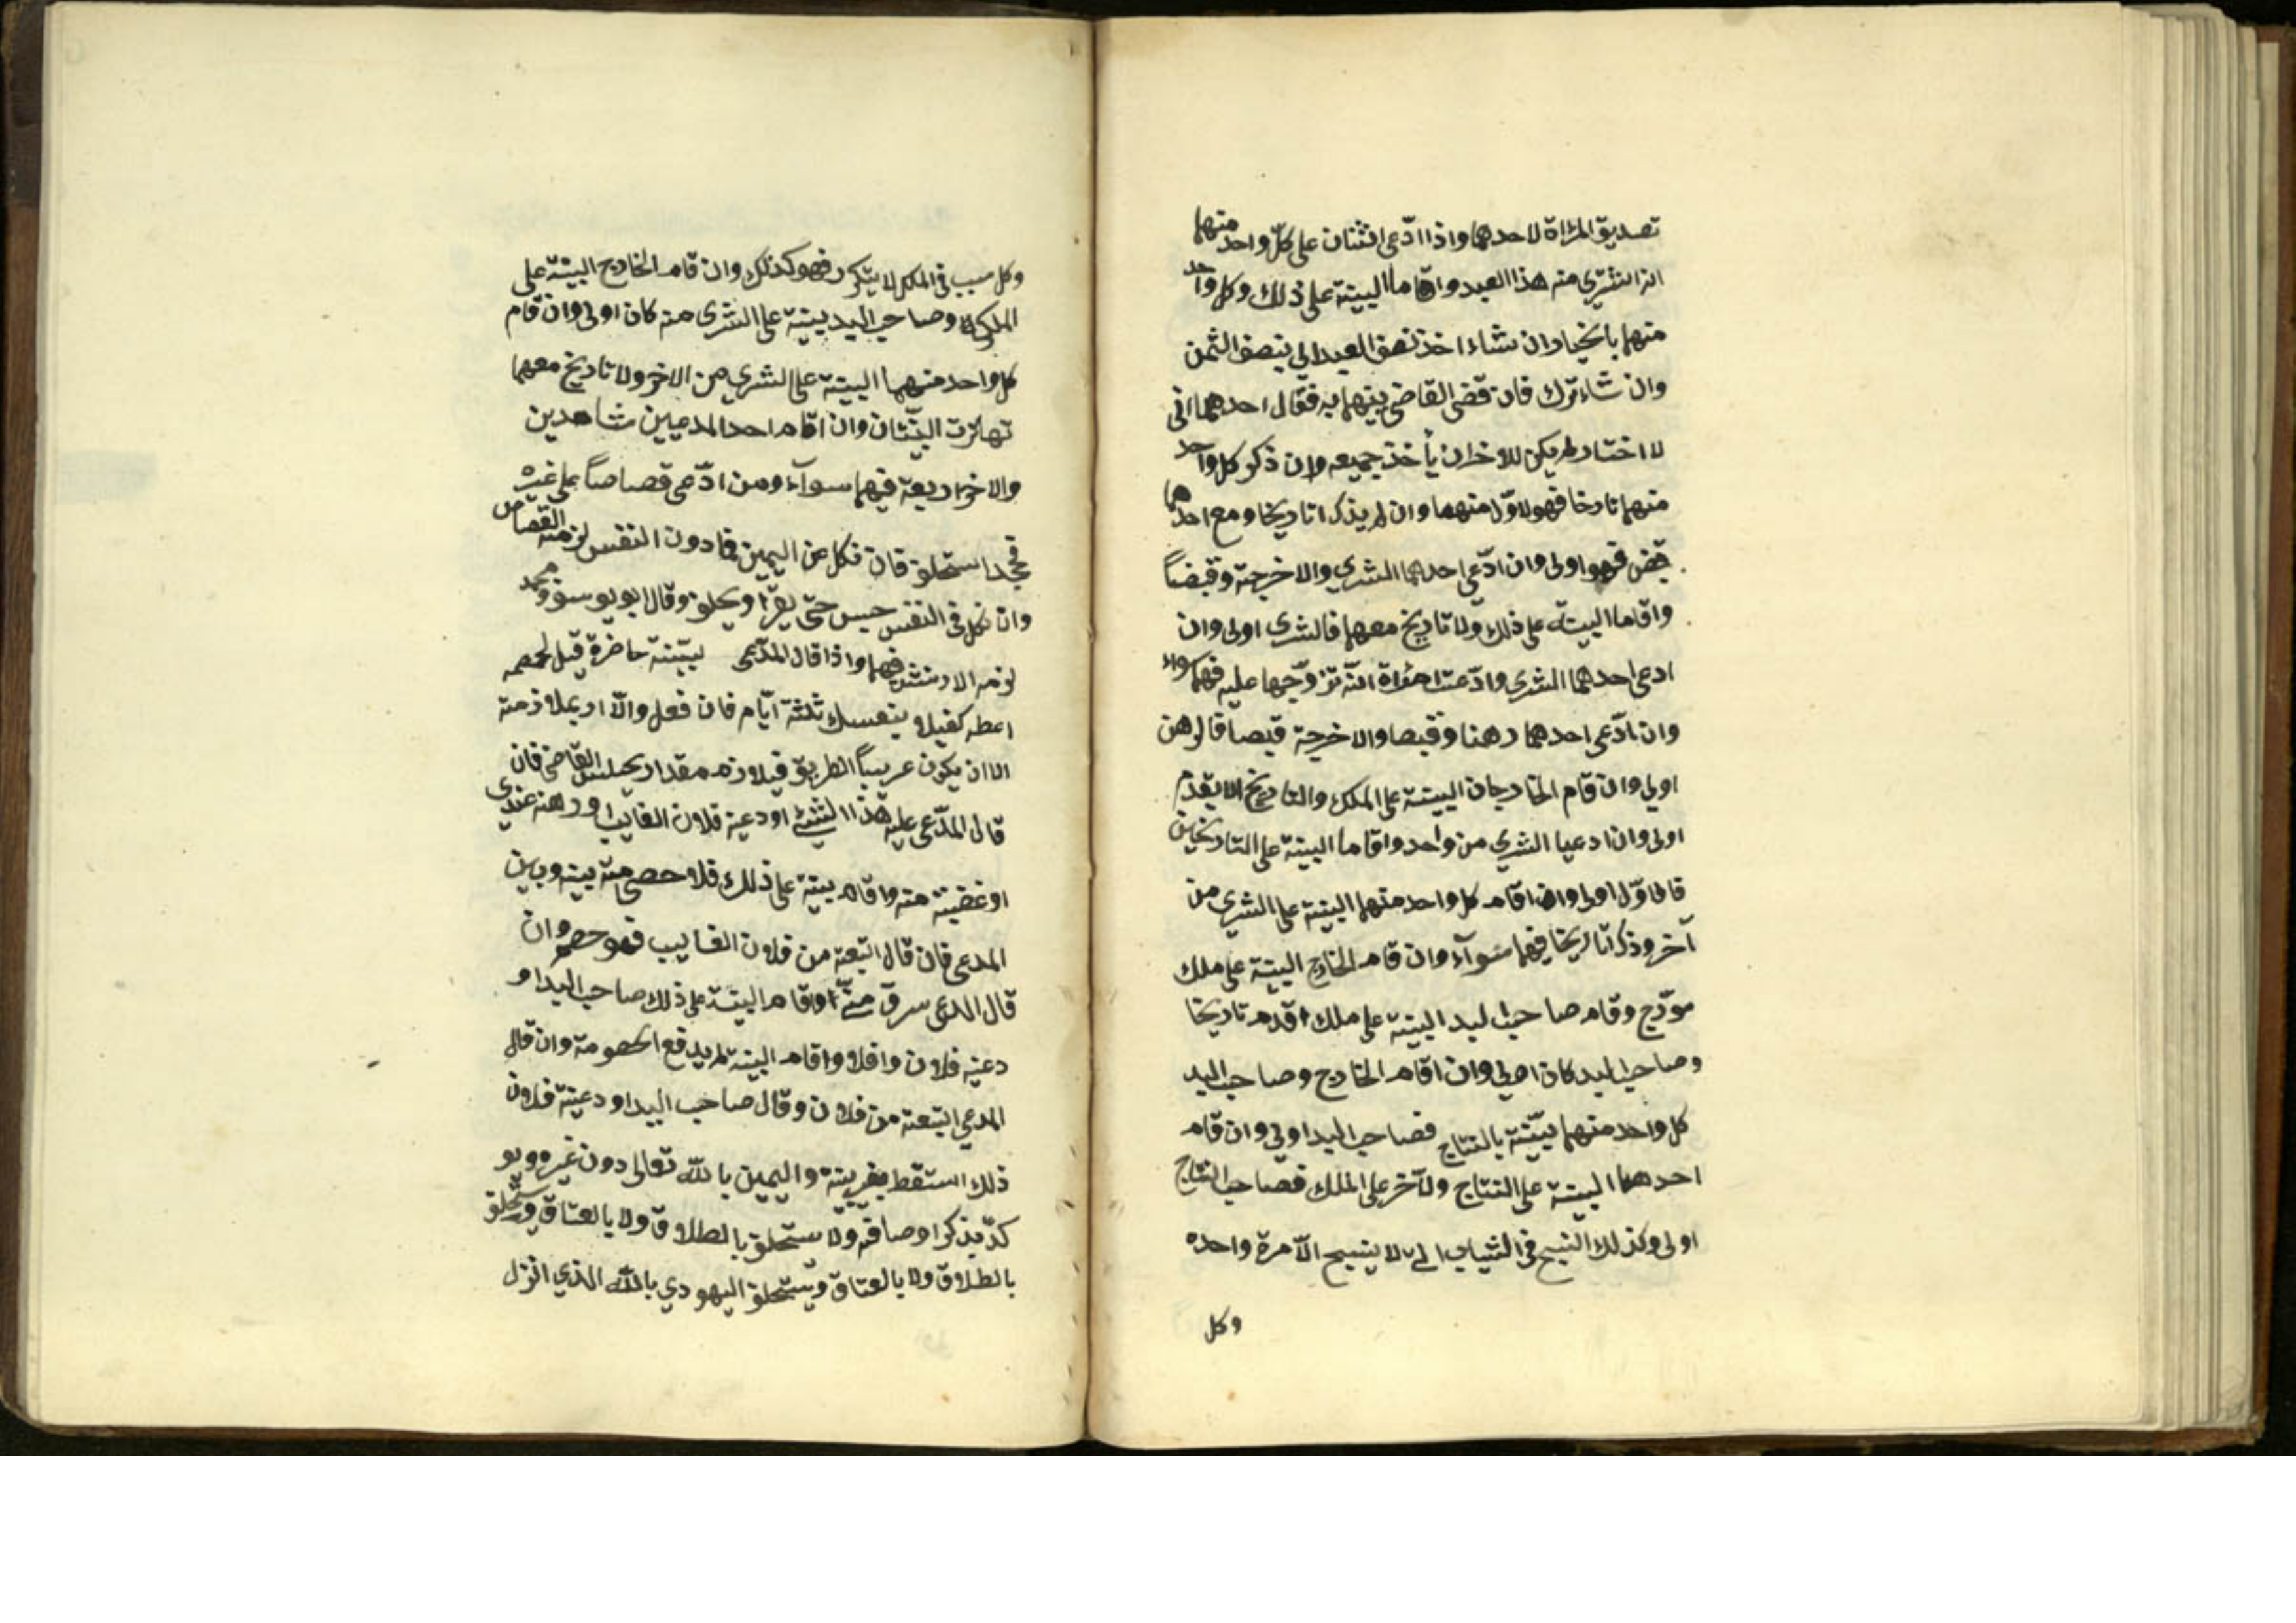 تصديق المرأة لاحدهما واذا ادّعى اثنان على كلّ واحد منهما
انه اشترى منه هذا العبد واقاما البينة على ذلك وكل واحد
منهما بالخيار ان شاء اخذ نصف العبد بنصف الثمن
وان شاء ترك فان قضى القاضي بينهما به فقال احدهما انى
لا اختار لم يكن للاخر ان يأخذ جميعه وان ذكر كل واحد
منهما تاريخا فهو لاوّل منهما وان لم يذكرا تاريخا ومع احدهما
قبض فهو اولى وان ادّعى احدهما الشرى والاخر هبة وقبضاً
واقاما البينة على ذلك ولا تاريخ معهما فالشرى اولى وان
ادعى احدهما الشرى وادّعت امرأة انّه تزوّجها عليه فهما سواء
وان ادّعى احدهما رهنا وقبضا والاخر هبة قبضا فالرهن
اولى وان قام الخارجان البينة على الملك والتاريخ الا يقدم
اولى وان ادعيا الشرى من واحد واقاما البينة على التاريخين
فالاوّل اولى وان اقام كل واحد منهما البينة على الشرى من
آخر وذكرا تاريخا فهما سوآء وان قام الخارج البينة على ملك
مورّخ وقام صاحب اليد البينة على ملك اقدم تاريخا
وصاحب اليد كان اولى وان اقام الخارج وصاحب اليد
كل واحد منهما بيّنة بالنتاج فصاحب اليد اولى وان قام
احدهما البينة على النتاج ولآخر على الملك فصاحب النتاج
اولى وكذلك النسج في الثياب التي لا ينسج الاّ مرة واحده
وكل
وكل سبب في الملك لا يتكرر فهو كذلك وان قام الخارج البينة على
الملك وصاحب اليد بينة على الشرى منه كان اولى وان قام
كل واحد منهما البينة على الشرى من الاخر ولا تاريخ معهما
تهاترت البيّنتان وان اقام احد المدعيين شاهدين
والاخر اربعة فهما سوآء ومن ادّعى قصاصاً على غيره
فجحد استحلف فان نكل عن اليمين فما دون النفس لزمه القصاص
وان نكل في النفس حبس حتى يقرّ او يحلف وقال ابو يوسف ومحمد
لزمه الارش فيهما واذا قال المدّعى بيّنة حاضرة قيل لخصمه
اعطه كفيلا بنفسك ثلثة ايّام فان فعل والاّ امر بملازمته
الا ان يكون غريباً الطريق فيلازمه مقدار مجلس القاضي فان
قال المدّعى عليه هذا الشئ اودعنيه فلان الغايب او رهنه عندي
او غصبته منه واقام بينة على ذلك فلا خصومة بينه وبين
المدعى فان قال ابتعته من فلان الغايب فهو خصم وان
قال المدعى سرق منّي واقام البيّنة على ذلك صاحب اليد او
دعنيه فلان واقام البينة لم يدفع الخصومة وان قال
المدعي ابتعته من فلان وقال صاحب اليد اودعنيه فلان
ذلك اسقط بغير بينة واليمين بالله تعالى دون غيره ويو
كدّ بذكر اوصافه ولا يستحلف بالطلاق ولا بالعتاق ويستحلف
بالطلاق ولا بالعتاق ويستحلف اليهودي بالله الذي انزل